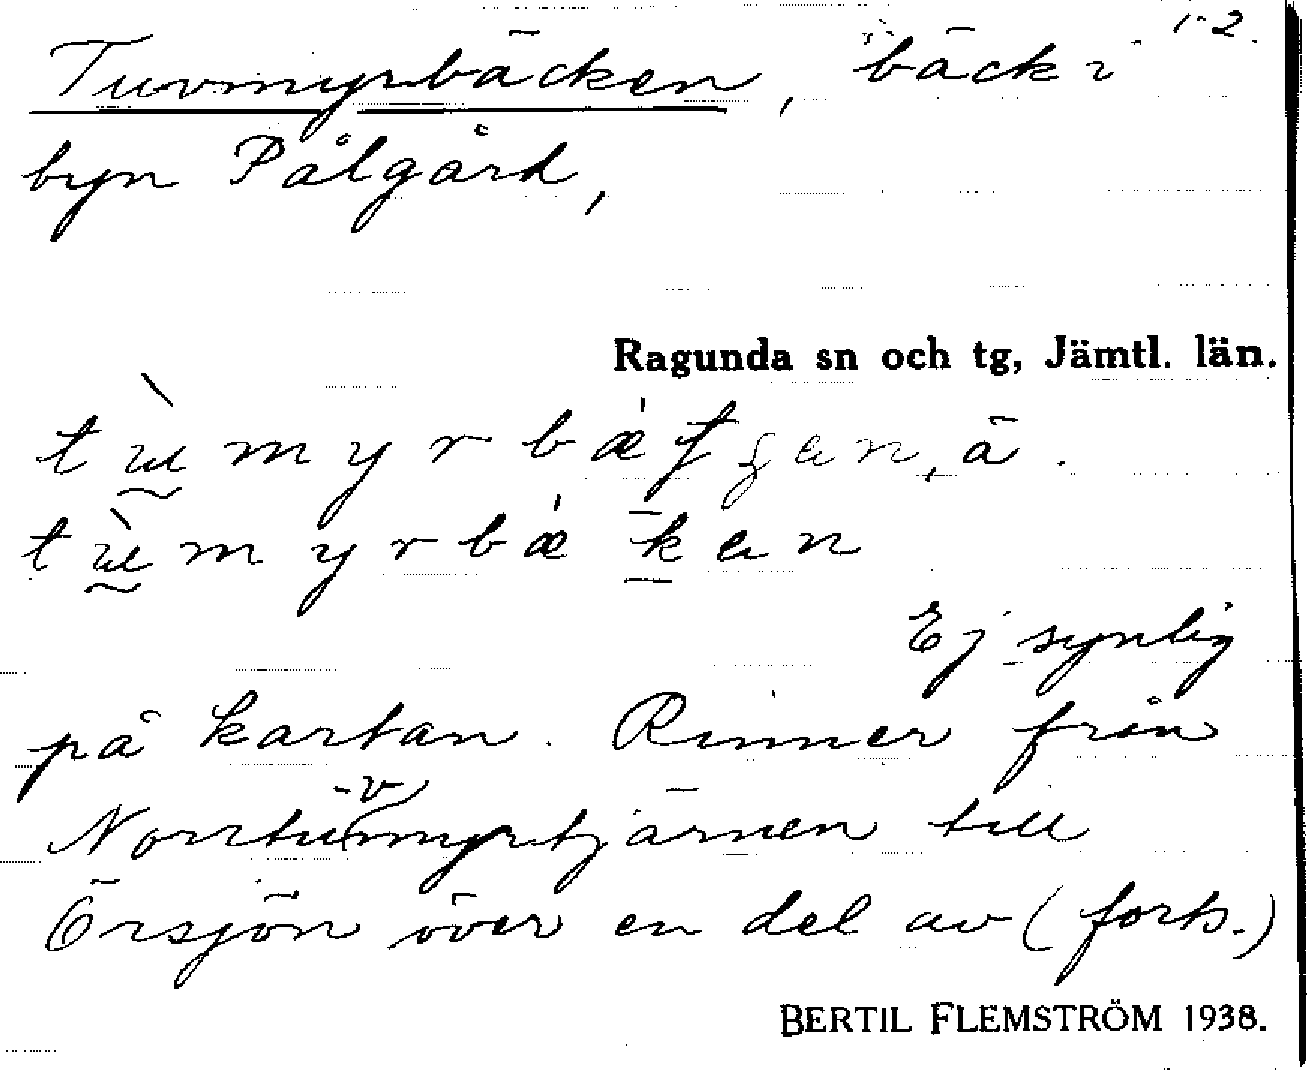 1-2.
Tuvmyrbäcken, bäck i
byn Pålgård,
Ragunda sn och tg, Jämtl. län.
myrbæ̀ , ä.
myrbæ̀ ken
Ej synlig
på kartan. Rinner från
Norrtuvmyrtjärnen till
Örsjön över en del av (forts.)
BERTIL FLEMSTRÖM 1938.